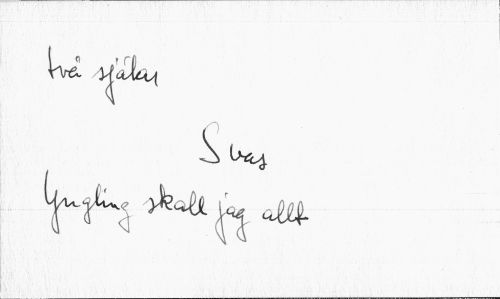 två själar
Svas
Yngling skall jag allt